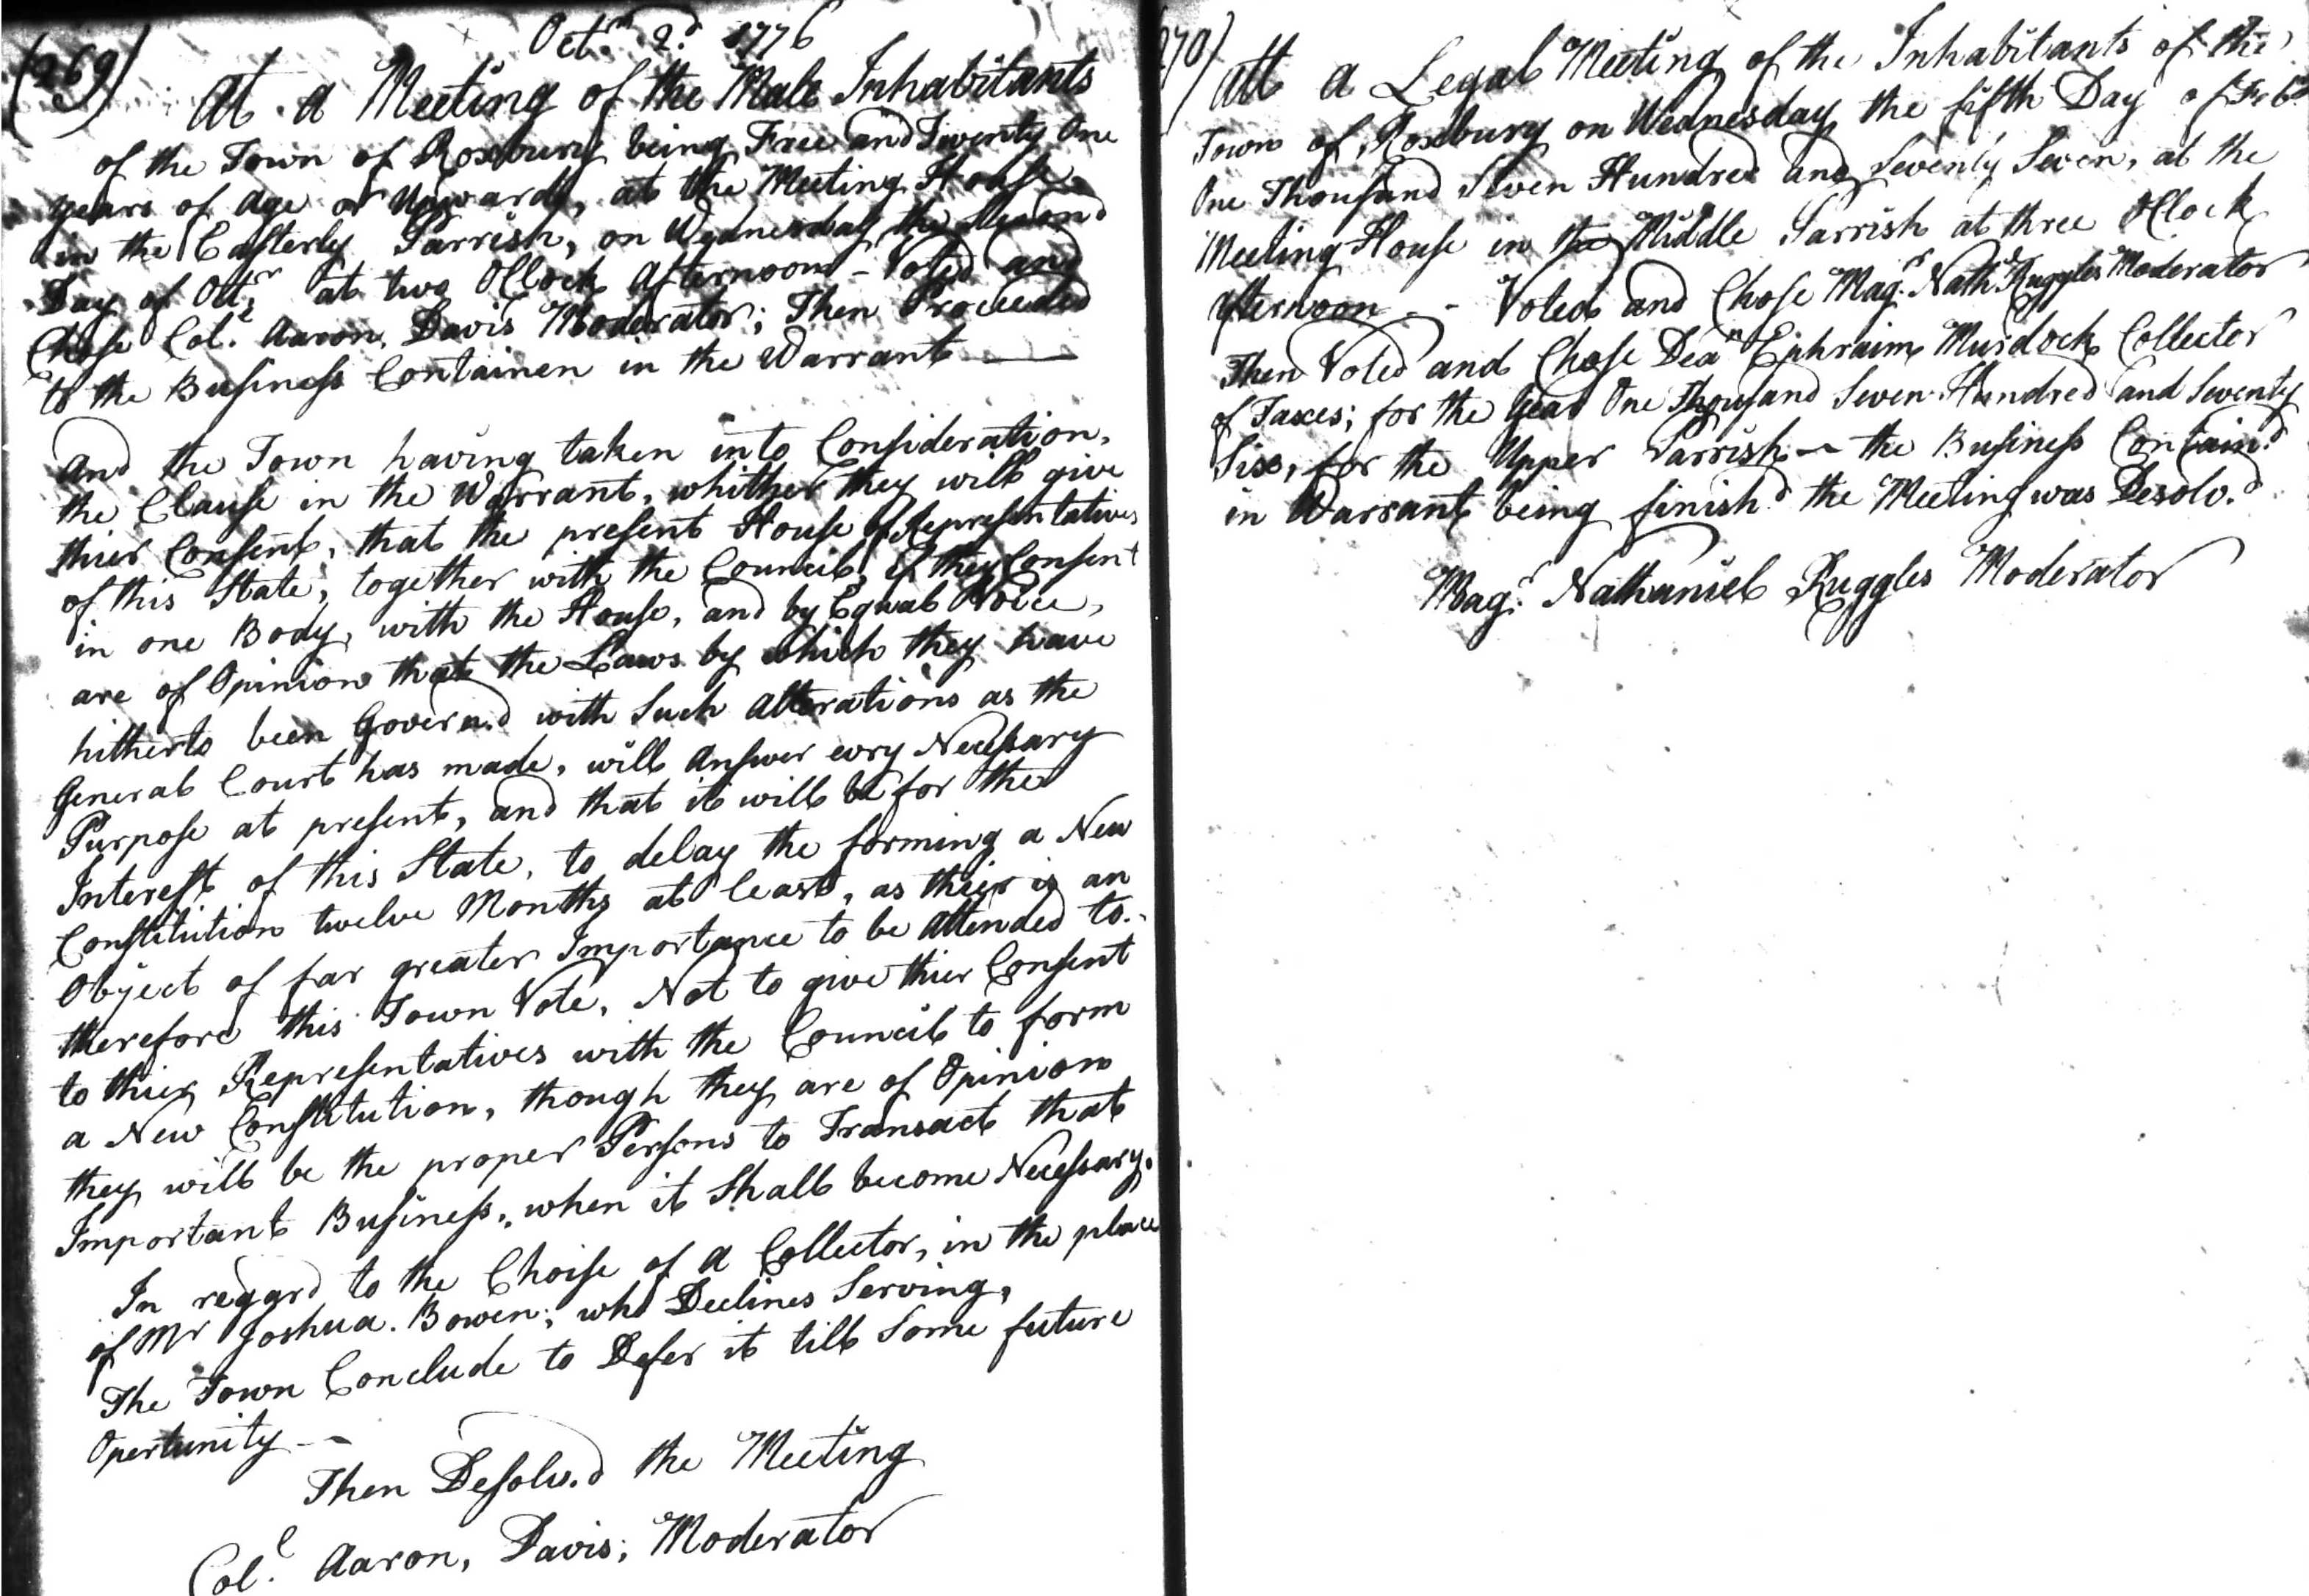 (269)
Octr. 2d. 1776
At a Meeting of the Male Inhabitants
of the Town of Roxbury being Free and Twenty One
years of Age or Upwards, at the Meeting House
in the Easterly Parrish, on Wednesday the Second
Day of Octr. at two OClock Afternoon - Voted and
Chose Col. Aaron, Davis Moderator; Then Proceeded
to the Business Containen in the Warrant
And the Town having taken into Consideration,
the Clause in the Warrant, whither they will give
thier Consent, that the present House of Representatives
of this State, together with the Council, if they Consent
in one Body, with the House, and by Equal Voice,
are of Opinion that the Laws by which they have
hitherto been Govern.d with Such Alterations as the
General Court has made, will Answer evry Necessary
Purpose at present, and that it will be for the
Interest of this State, to delay the forming a New
Constitution twelve Months at least, as their is an
Object of far greater Importance to be Attended to.
therefore this Town Vote, Not to give thier Consent
to thier Representatives with the Council to form
a New Constitution, though they are of Opinion
they will be the proper Persons to Transact that
Important Business, when it Shall become Necessary.
In regard to the Choise of A Collector, in the place
of Mr Joshua. Bowen; who Declines Serving,
The Town Conclude to Defer it till Some future
Opertunity -
Then Desolv.d the Meeting
Col.l Aaron, Davis; Moderator
270)
Att A Legal Meeting of the Inhabitants of the
Town of Roxbury on Wednesday the fifth Day of Feb.
One Thousand Seven Hundred and Seventy Seven, at the
Meeting House in the Middle Parrish at three OClock
Afternoon - Voted and Chose Magr. Nath Ruggles Moderator
Then Voted and Chose Dean Ephraim Murdock Collector
of Taxes; for the Year One Thousand Seven Hundred and Seventy
Six, for the Upper Parrish - the Business Contain.d
in Warrant being finish.d the Meeting was Desolv.d
Magr. Nathaniel Ruggles Moderator